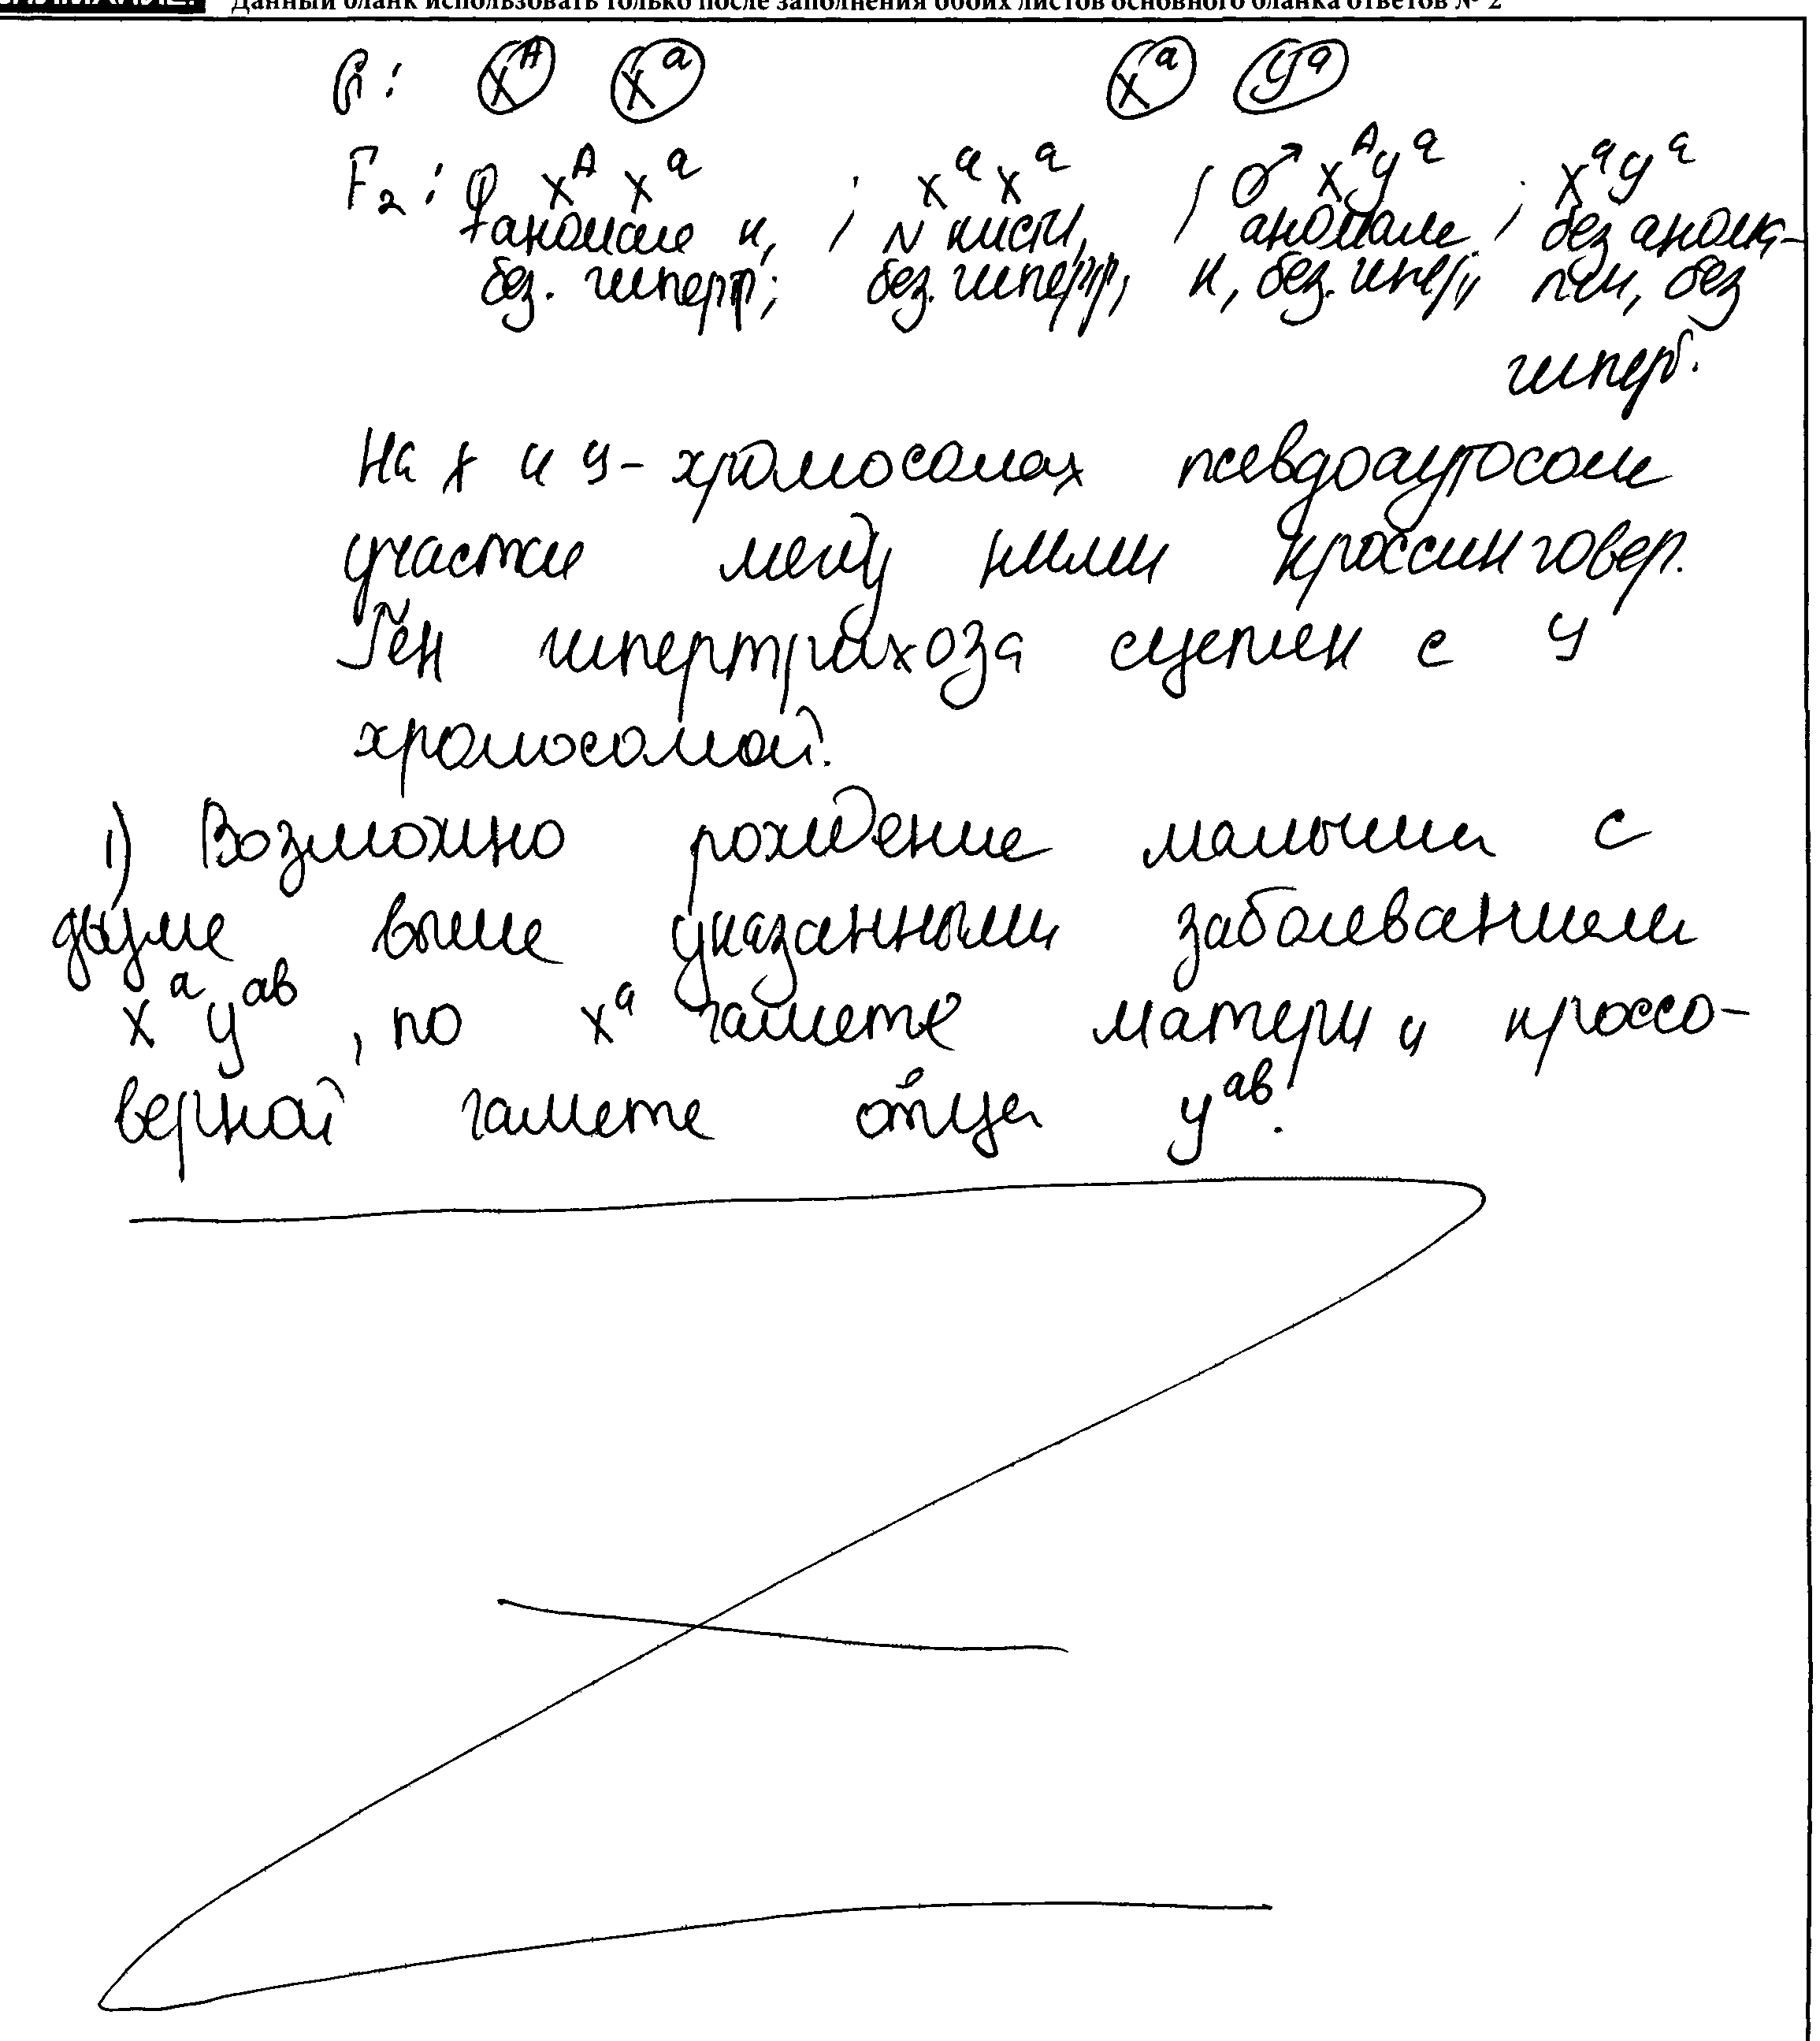 Данный бланк использовать только после заполнения обоих листов основного бланка ответов № 2
G: X^A X^a X^a Y^a
F₂: ♀ X^A X^a ; X^a X^a ; ♂ X^A Y^a ; X^a Y^a
аномале к, ; N кисти, ; аномале ; без анома-
без. гиперт; без. гиперт, к, без. гипер, лии, без
гиперт.
На X и Y-хромосомах псевдоаутосом
участки между ними кроссинговер.
Ген гипертрихоза сцеплен с Y
хромосомой.
1) Возможно рождение малыша с
двумя выше указанными заболеваниями
X^a Y^ab, по X^a гамете матери и кроссо-
верной гамете отца Y^ab.